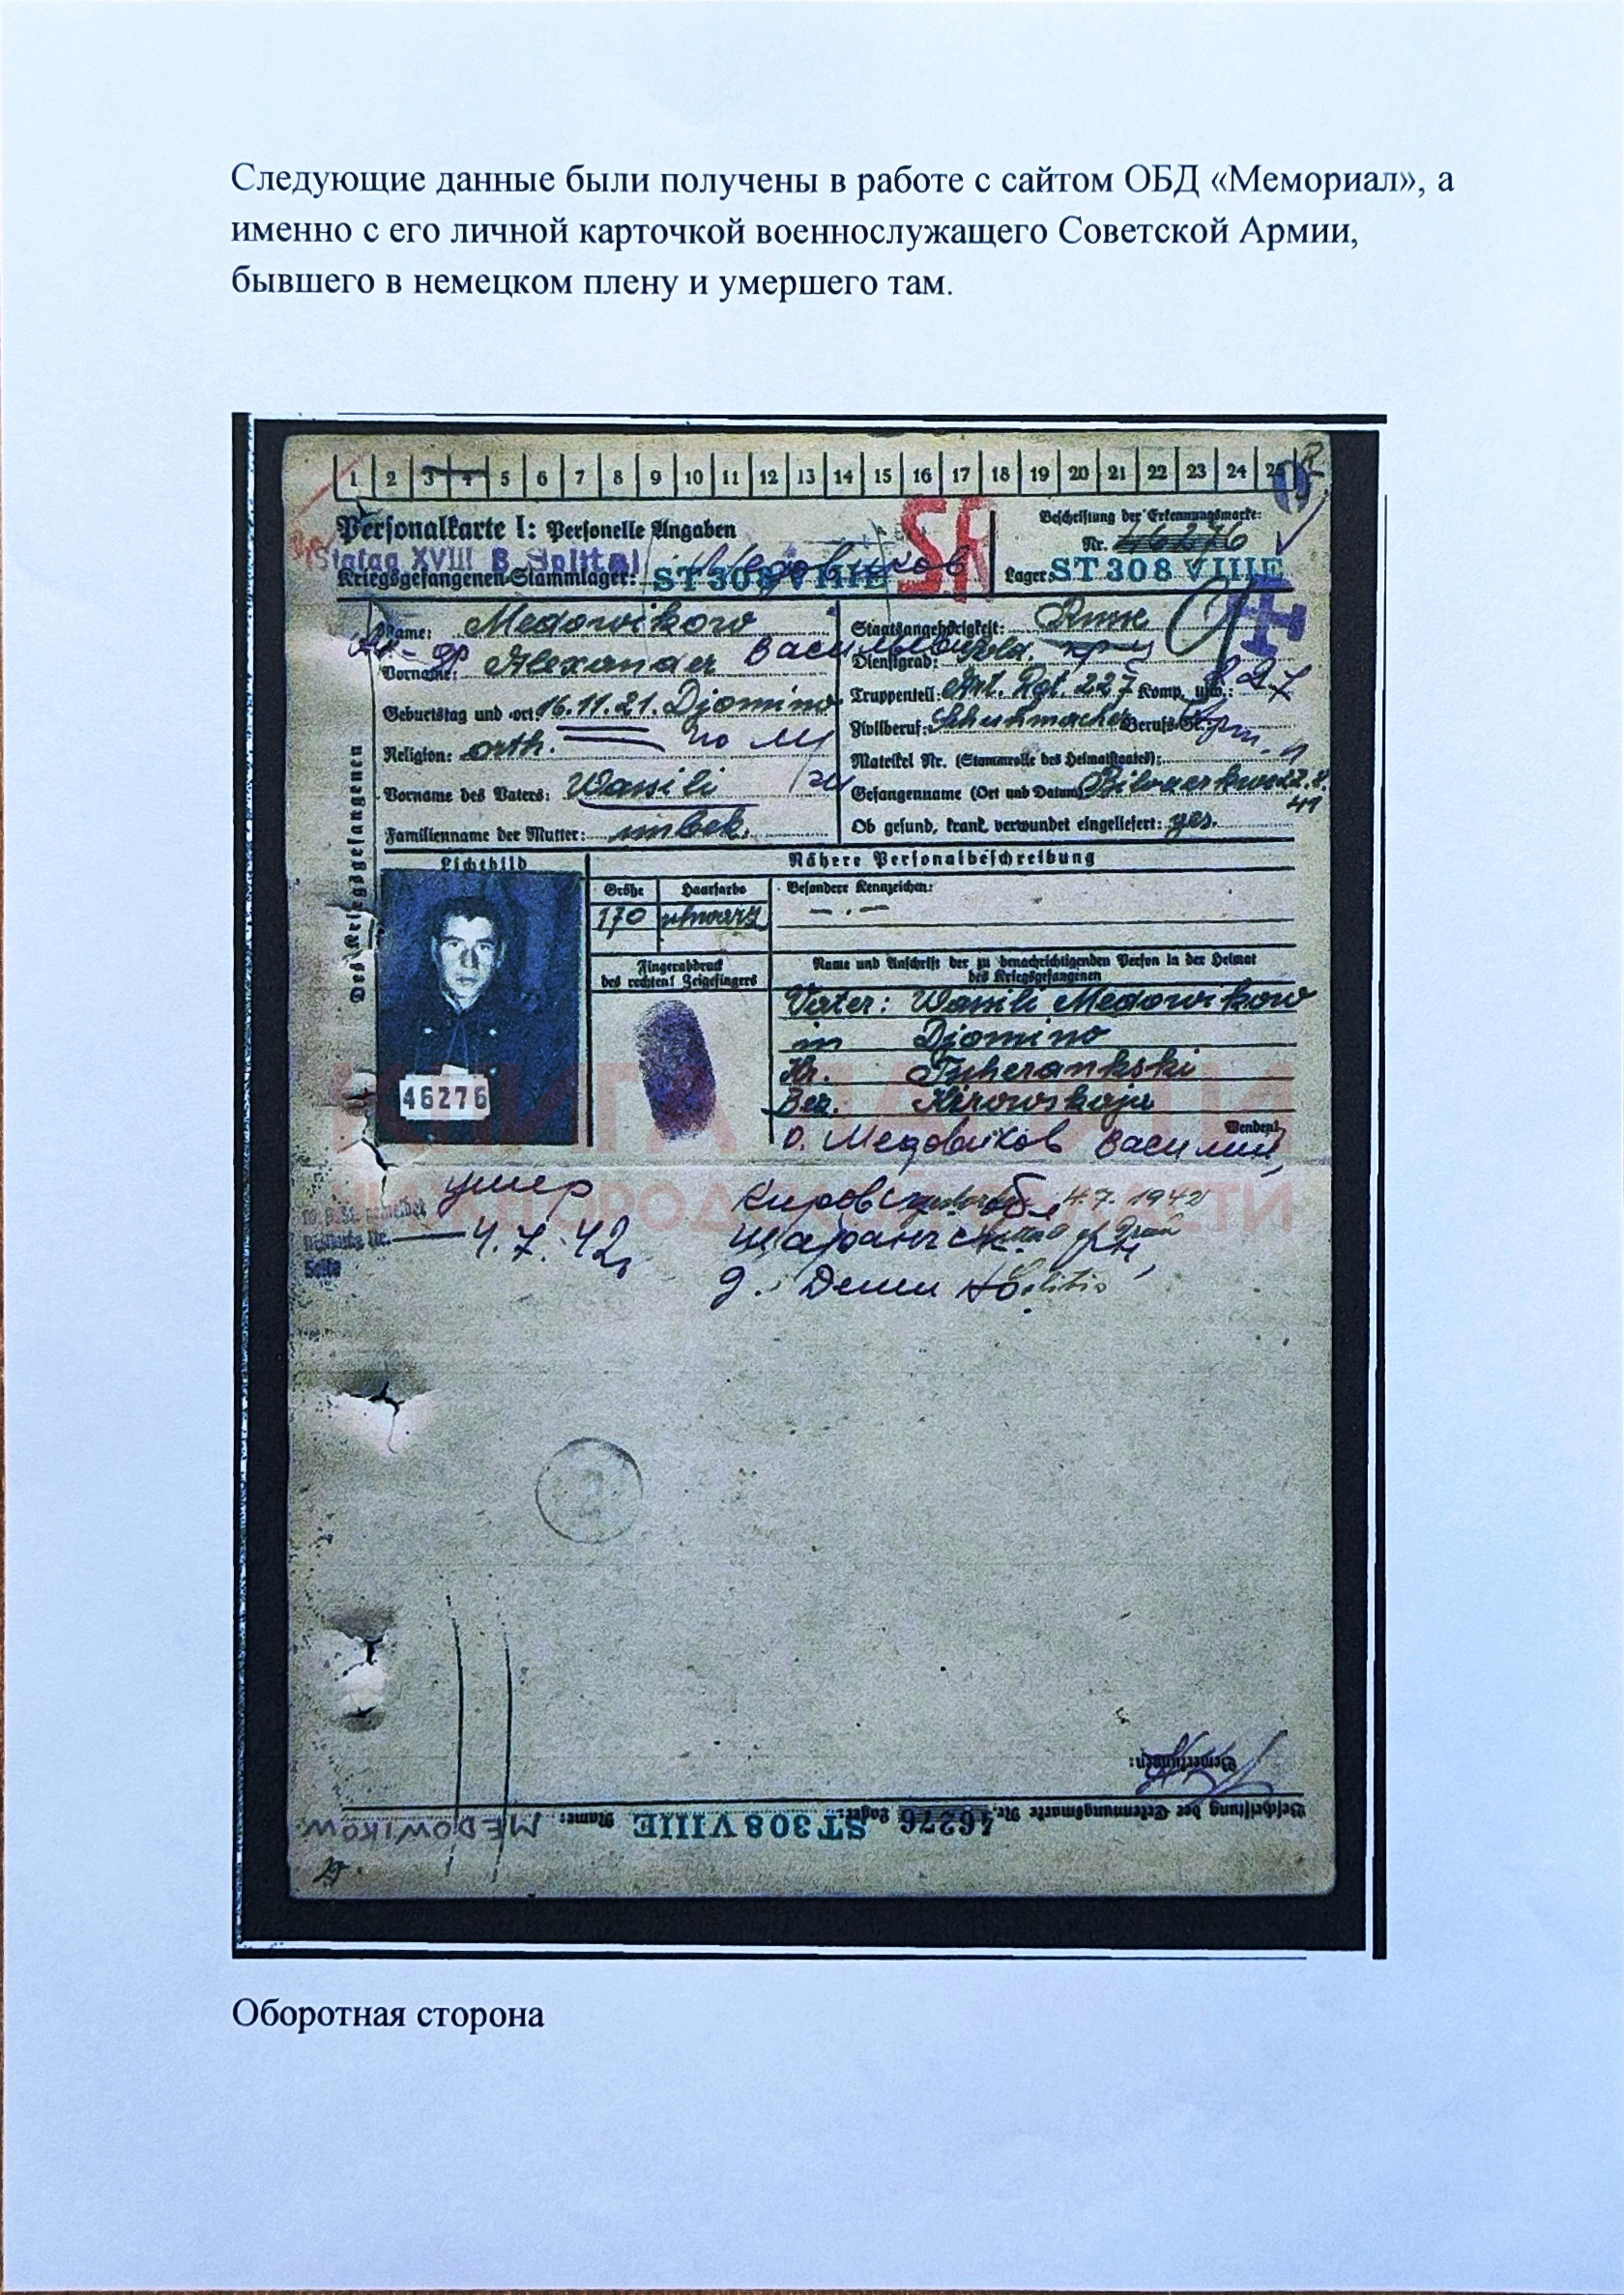 Следующие данные были получены в работе с сайтом ОБД «Мемориал», а
именно с его личной карточкой военнослужащего Советской Армии,
бывшего в немецком плену и умершего там.
1 2 3 4 5 6 7 8 9 10 11 12 13 14 15 16 17 18 19 20 21 22 23 24 25
Personalkarte I: Personelle Angaben
Beschriftung der Erkennungsmarke:
Nr. 46276
Stalag XVIII B Spittal
Медовиков
Kriegsgefangenen-Stammlager: ST 308 VIIIE
Lager: ST 308 VIIIE
Des Kriegsgefangenen
Name: Medowikow
Vorname: Alexander Васильевич
Geburtstag und -ort: 16.11.21. Djomino
Religion: orth.
Vorname des Vaters: Wassili
Familienname der Mutter: unbek.
Staatsangehörigkeit: Russe
Dienstgrad: Sold.
Truppenteil: Art. Rgt. 227 Komp. usw.:
Zivilberuf: Schuhmacher Berufs-Gr.:
Matrikel Nr. (Stammrolle des Heimatstaates):
Gefangennahme (Ort und Datum): 22.8.41
Ob gesund, krank, verwundet eingeliefert:
Lichtbild
46276
Nähere Personalbeschreibung
Größe Haarfarbe Besondere Kennzeichen:
170 schwarz
Fingerabdruck
des rechten! Zeigefingers
Name und Anschrift der zu benachrichtigenden Person in der Heimat
des Kriegsgefangenen
Vater: Wassili Medowikow
in Djomino
Kr. Scherankski
Bez. Kirowskaja
Wenden!
о. Медовиков Василий
умер
4.7.42г
Кировск обл 4.7.1942
Шарангск. рн,
д. Демино
КНИГА ПАМЯТИ
НИЖЕГОРОДСКОЙ ОБЛАСТИ
Bemerkungen:
Beschriftung der Erkennungsmarke Nr. 46276 Lager: ST 308 VIIIE Name: MEDOWIKOW
Оборотная сторона